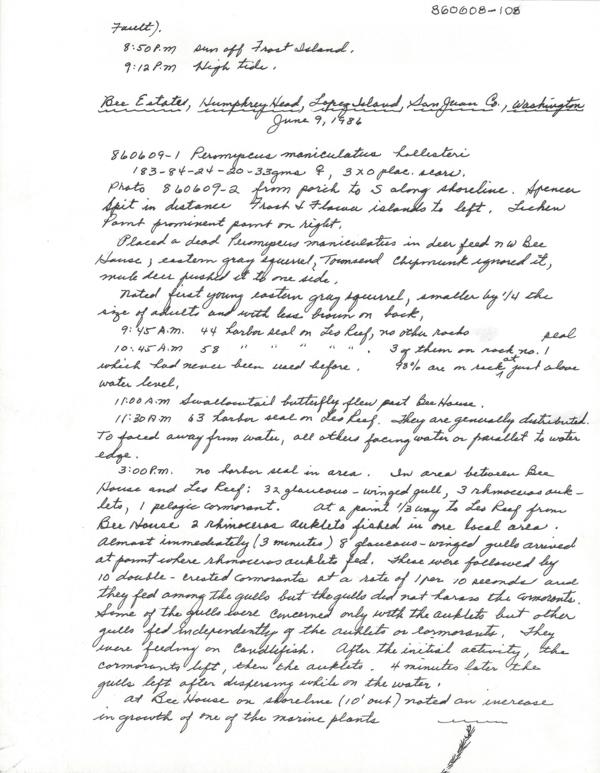 860608-108
Fault).
8:50 P.M sun off Frost Island.
9:12 P.M High tide.
Bee Estates, Humphrey Head, Lopez Island, San Juan Co., Washington
June 9, 1986
860609-1 Peromyscus maniculatus hollisteri
183-84-24-20-33gms ♀, 3x0 plac. scars.
Photo 860609-2 from porch to S along shoreline. Spencer
Spit in distance Frost & Flower islands to left. Lichen
Point prominent point on right.
Placed a dead Peromyscus maniculatus in deer feed NW Bee
House; eastern gray squirrel, Townsend Chipmunk ignored it,
mule deer pushed it to one side.
Noted first young eastern gray squirrel, smaller by 1/4 the
size of adults and with less brown on back.
9:45 A.M. 44 harbor seal on Leo Reef, no other rocks seal
10:45 A.M 58 " " " " ". 3 of them on rock no. 1
which had never been used before. 98% are on rock at just above
water level.
11:00 A.M Swallowtail butterfly flew past Bee House.
11:30 A.M 63 harbor seal on Leo Reef. They are generally distributed.
To faced away from water, all others facing water or parallel to water
edge.
3:00 P.M. no harbor seal in area. In area between Bee
House and Leo Reef: 32 glaucous-winged gull, 3 rhinoceros auk-
lets, 1 pelagic cormorant. At a point 1/3 way to Leo Reef from
Bee House 2 rhinoceros auklets fished in one local area.
Almost immediately (3 minutes) 8 glaucous-winged gulls arrived
at point where rhinoceros auklets fed. These were followed by
10 double-crested cormorants at a rate of 1 per 10 seconds and
they fed among the gulls but the gulls did not harass the cormorants.
Some of the gulls were concerned only with the auklets but other
gulls fed independently of the auklets or cormorants. They
were feeding on Candlefish. After the initial activity, the
cormorants left, then the auklets. 4 minutes later the
gulls left after dispersing while on the water.
At Bee House on shoreline (10' out) noted an increase
in growth of one of the marine plants